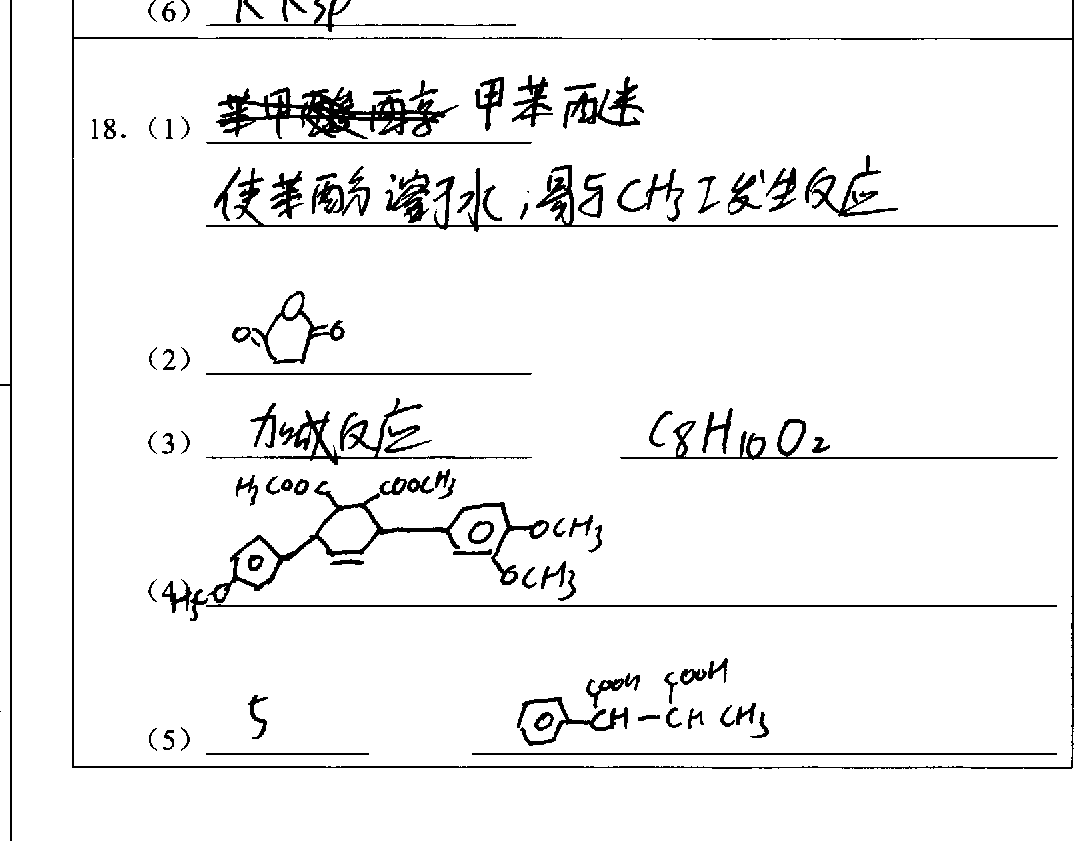 (6) K Ksp
18. (1) 甲苯醚
使苯酚溶于水，易与CH3I发生反应
(2) O O O
(3) 加成反应 C8H10O2
H3COOC COOCH3
OCH3
OCH3
(4) H3CO
COOH COOH
CH-CH CH3
(5) 5